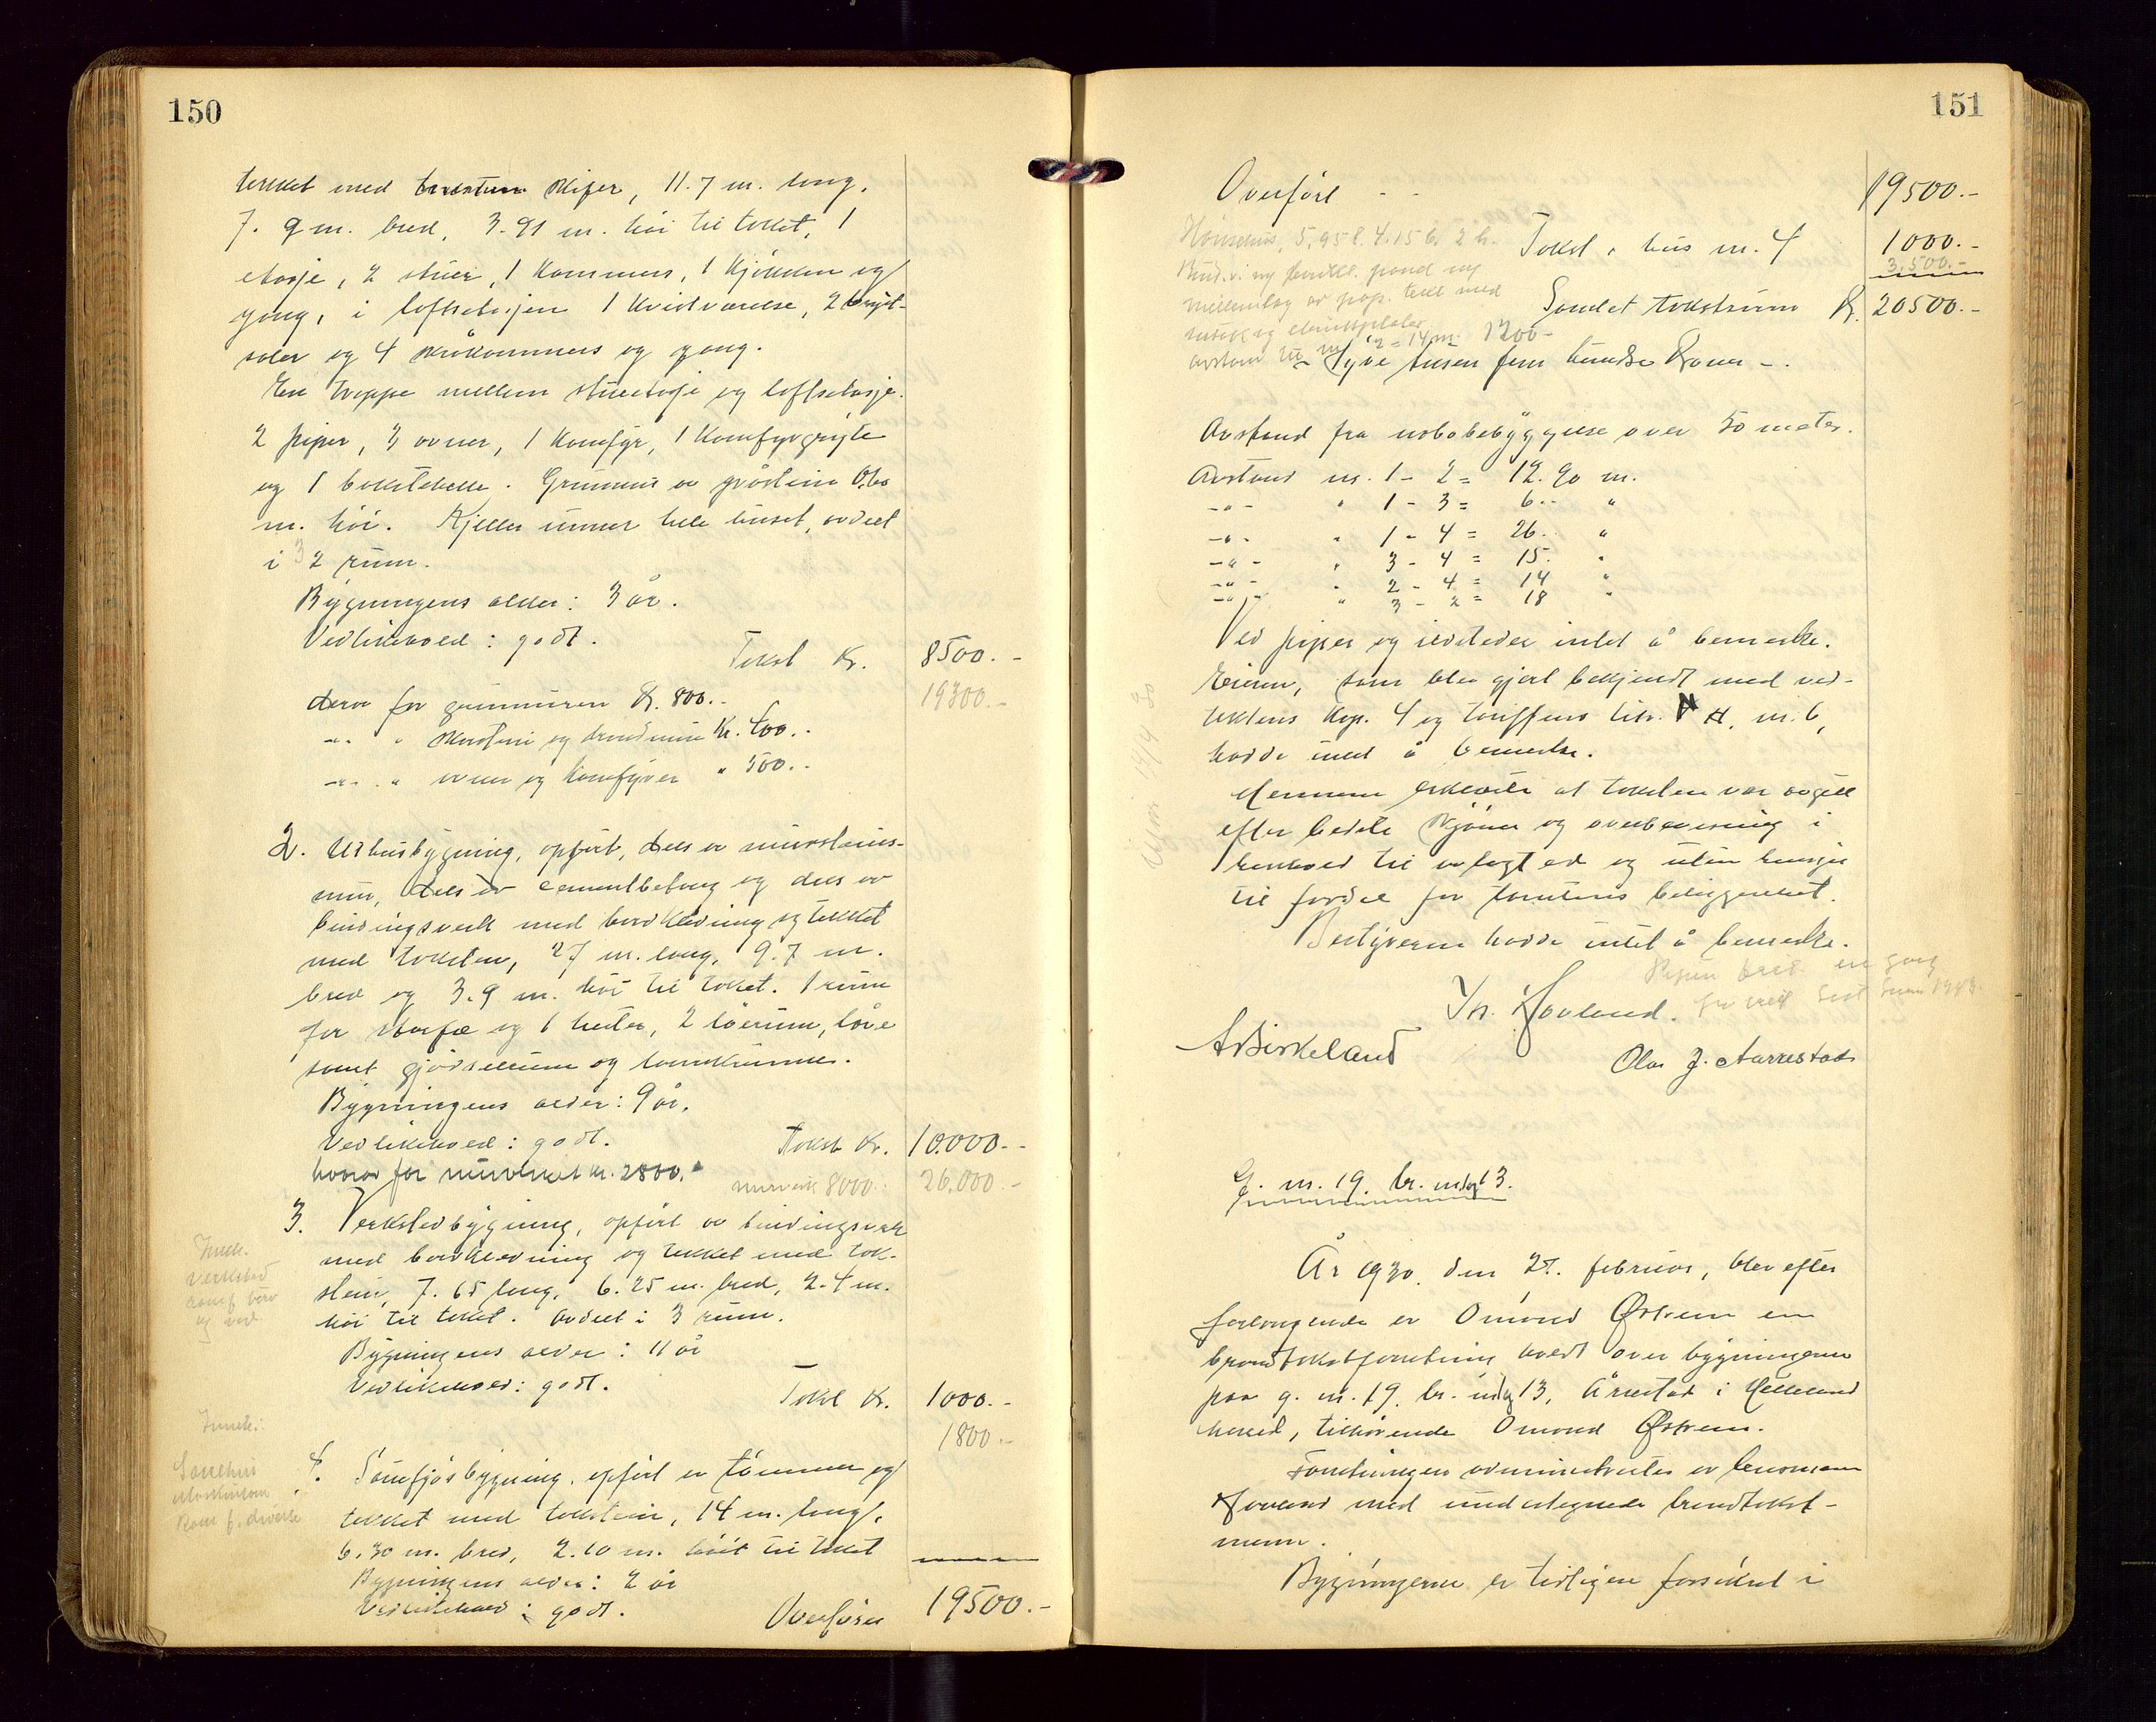 150
tekket med skifer, 11.7 m. lang,
7. 9 m. bred, 3.91 m. høi til taket, 1
etasje, 2 stuer, 1 kammers, 1 kjøkken og
gang, i loftsetasjen 1 kvistværelse, 2
og 4 skråkammers og gang.
En trappe mellem stueetasje og loftsetasje.
2 piper, 3 ovner, 1 komfyr, 1 komfyrgryte
og 1 bakstehelle. Grunmur av gråstein
m. høi. Kjeller under hele huset, avdelt
i 2 rum. 3
Bygningens alder: 3 år.
Vedlikehold: godt.
Takst Kr. 8500.-
19300.-
derav for grunmuren Kr. 800.-
-"- " skorstein og brandmur Kr. 400.-
-"- " ovner og komfyrer " 500.-
2. Uthusbygning, opført, dels av murstens-
mur, dels av cementbetong og dels av
bindingsverk med bordklædning og tekket
med taksten, 27 m. lang, 9.7 m.
bred og 3.9 m. høi til taket. 1 rum
for storfæ og 1 hester, 2 løerum, låve
samt gjødselrum og landkummer.
Bygningens alder: 9 år.
Vedlikehold: godt.
Takst Kr. 10.000.-
hvorav for murverket kr. 2800.-
murverk 8000.- 26.000.-
3. Verkstedbygning, opført av bindingsverk
med bordklædning og tekket med tak-
stein, 7.65 lang, 6.25 m. bred, 2.4 m.
høi til taket. Avdelt i 3 rum.
Bygningens alder: 11 år
Vedlikehold: godt.
Takst Kr. 1000.-
1800.-
Innr.
Verksted
og ved
Innr:
Sauehus
Rom f. diverse
4. Sauefjøsbygning, opført av tømmer og
tekket med takstein, 14 m. lang,
6.30 m. bred, 2.10 m. høit til taket
Bygningens alder: 2 år
Vedlikehold: godt.
Overføres 19500.-
151
Overført - - 19500.-
Hønsehus, 5,95 l. 4.15 b. 2 h.
Takst, hus nr. 4 1000.-
3,500.-
mellemlag av pap. tekt med
Samlet takstsum Kr. 20500.-
avstand til nr. 2 = 14 m. 1200-
- Tyve tusen fem hundre Kroner -.
Avstand fra nabobebyggelse over 50 meter.
Avstand nr. 1 - 2 = 12.90 m.
-"- " 1 - 3 = 6.- "
-"- " 1 - 4 = 26.- "
-"- " 3 - 4 = 15. "
-"- " 2 - 4 = 14 "
-"- " 3 - 2 = 18 "
Ved piper og ildsteder intet å bemerke.
Eieren, som blev gjort bekjendt med ved-
tektens kap. 4 og tariffens litr. H. nr. 6,
hadde intet å bemerke.
Mennene erklærte at taksten var avgitt
efter bedste skjønn og overbevisning i
henhold til avlagt ed og uten hensyn
til fordel for tomtens beliggenhet.
Bestyreren hadde intet å bemerke.
Th. Hovland.
A Birkeland
Olai J. Aarrestad
G. nr. 19 br. nr. 1 og 13.
År 1930, den 25. februar, blev efter
forlangende av Omund Østrem en
brandtakstforretning holdt over bygningerne
paa g. nr. 19, br. nr. 1 og 13, Årrestad i Helleland
herred, tilhørende Omund Østrem.
Forretningen administrertes av lensmann
Hovland med undertegnede brandtakst-
menn.
Bygningerne er tidligere forsikret i